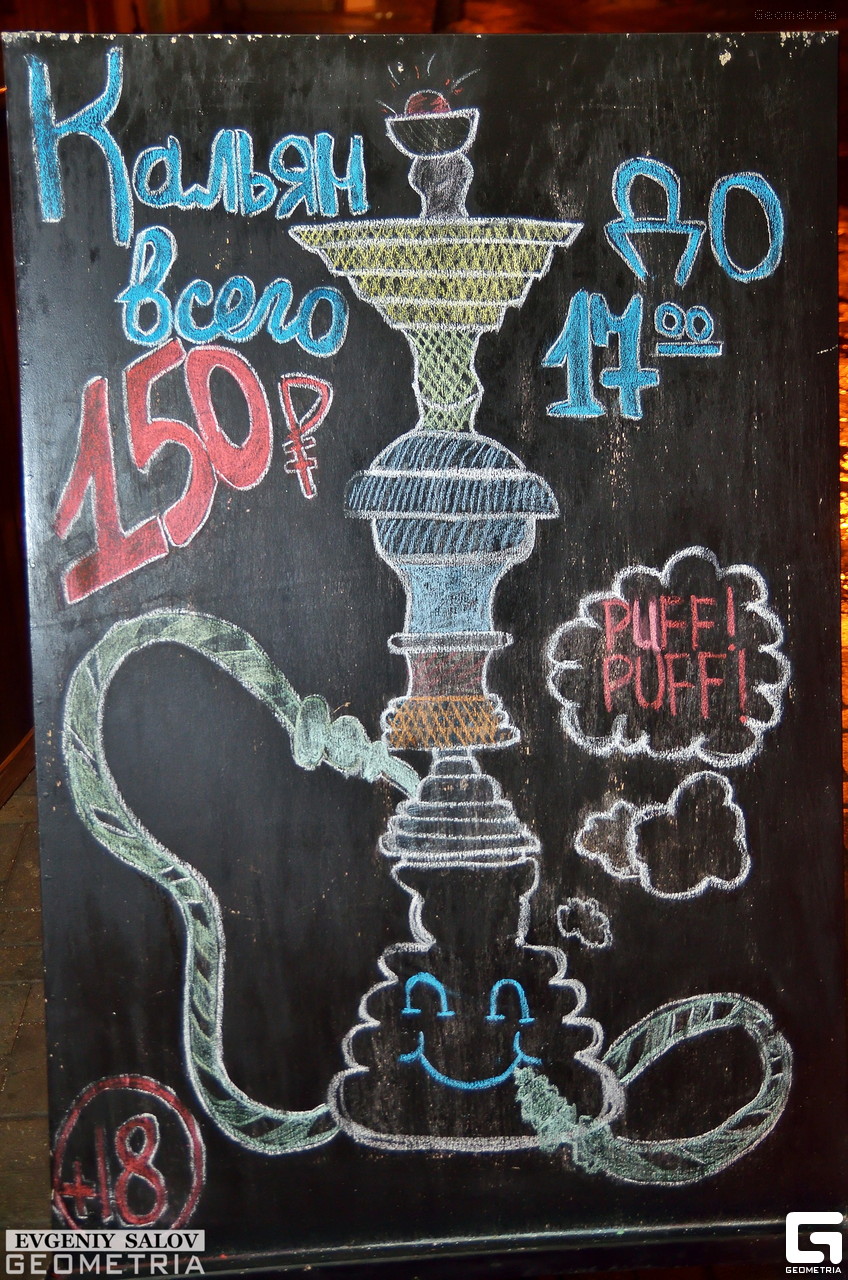 Geometria
Кальян
всего
150 ₽
до
17 00
PUFF!
PUFF!
+18
EVGENIY SALOV
GEOMETRIA
GEOMETRIA